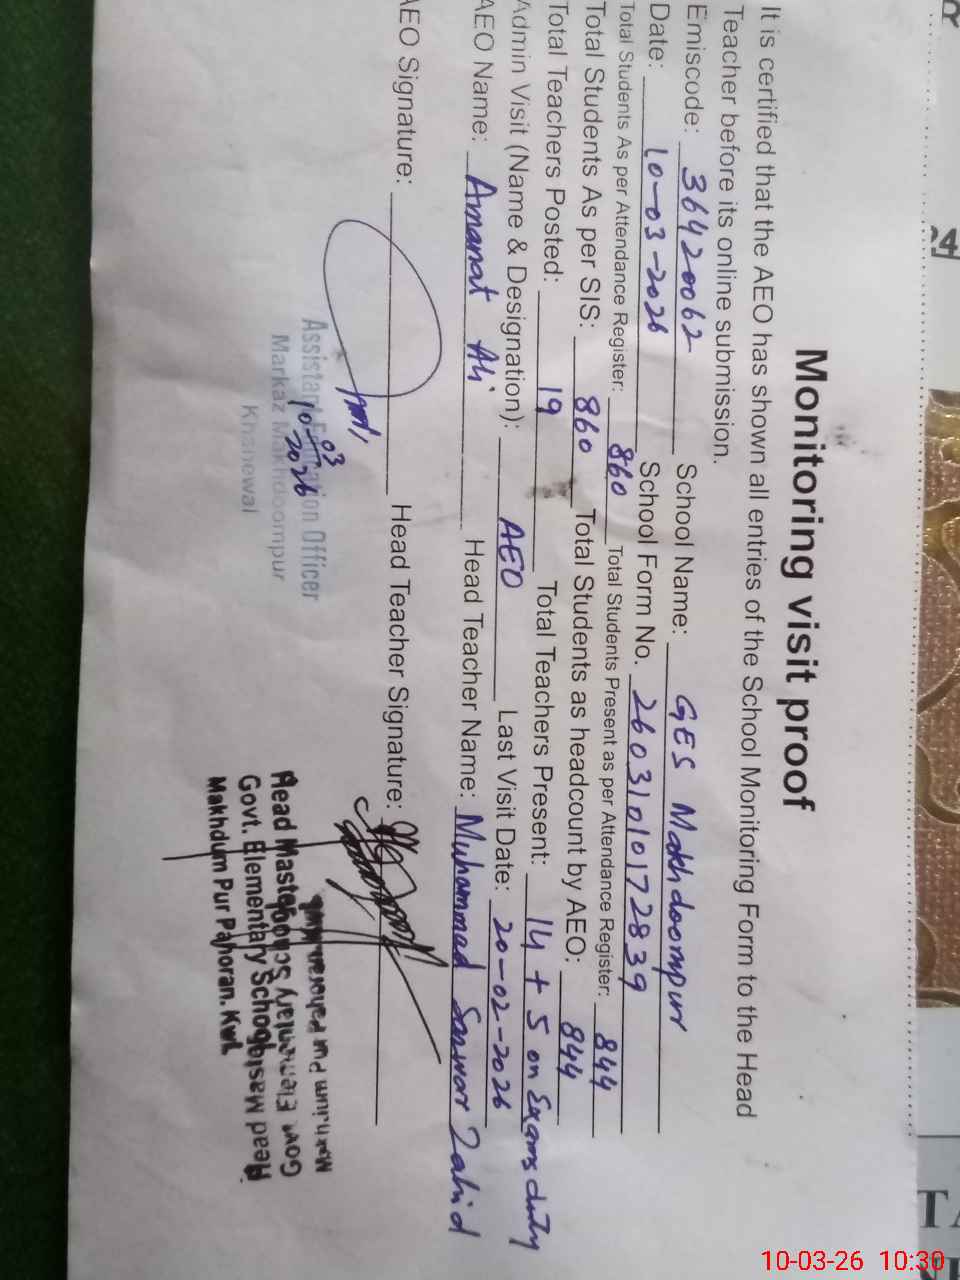 Monitoring visit proof
It is certified that the AEO has shown all entries of the School Monitoring Form to the Head
Teacher before its online submission.
Emiscode: 36420062 School Name: GES Makhdoompur
Date: 10-03-2026 School Form No. 26031010172839
Total Students As per Attendance Register: 860 Total Students Present as per Attendance Register: 844
Total Students As per SIS: 860 Total Students as headcount by AEO: 844
Total Teachers Posted: 19 Total Teachers Present: 14 + 5 on Exams duty
Admin Visit (Name & Designation): AEO Last Visit Date: 20-02-2026
AEO Name: Amanat Ali Head Teacher Name: Muhammad Sarwar Zahid
AEO Signature: Head Teacher Signature:
Assistant Education Officer
Markaz Makhdoompur
Khanewal
10-03-2026
Head Master
Govt. Elementary School
Makhdum Pur Pahoran. Kwl.
Head Master
Govt. Elementary School
Makhdum Pur Pahoran
24
10-03-26 10:30